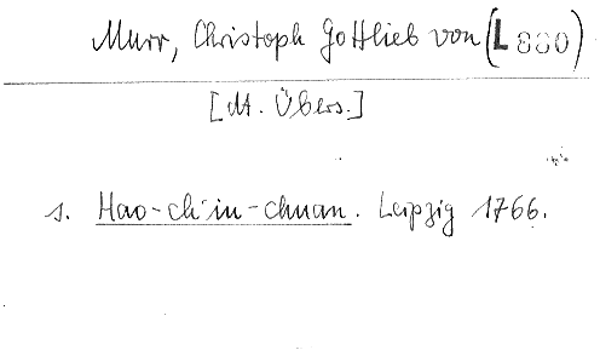 Murr, Christoph Gottlieb von (L 880)
[dt. Übers.]
s. Hao-ch'iu-chuan. Leipzig 1766.